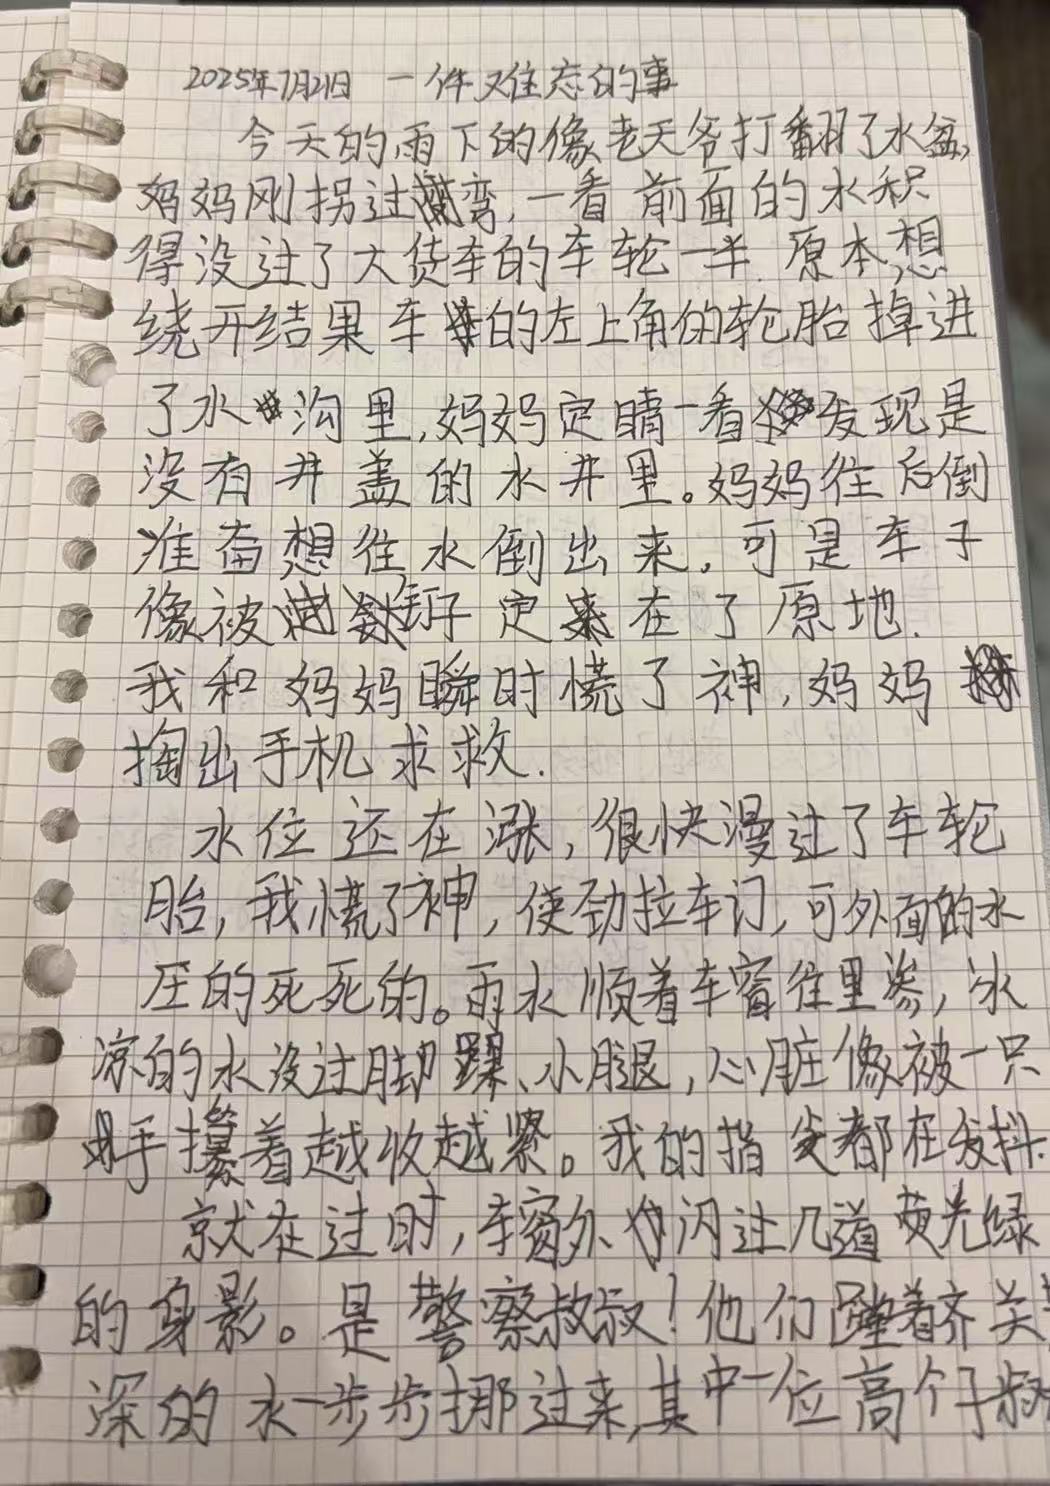 2025年7月21日 一件难忘的事
今天的雨下的像老天爷打翻了水盆,
妈妈刚拐过弯,一看前面的水积
得没过了大货车的车轮一半.原本想
绕开结果车的左上角的轮胎掉进
了水沟里,妈妈定睛一看发现是
没有井盖的水井里。妈妈往后倒
准备想往水倒出来,可是车子
像被钉子定在了原地.
我和妈妈瞬时慌了神,妈妈
掏出手机求救.
水位还在涨,很快漫过了车轮
胎,我慌了神,使劲拉车门,可外面的水
压的死死的。雨水顺着车窗往里渗,冰
凉的水没过脚踝、小腿,心脏像被一只
手攥着越收越紧。我的指尖都在发抖.
就在过时,车窗外闪过几道荧光绿
的身影。是警察叔叔!他们蹚着齐关
深的水一步步挪过来,其中一位高个子叔